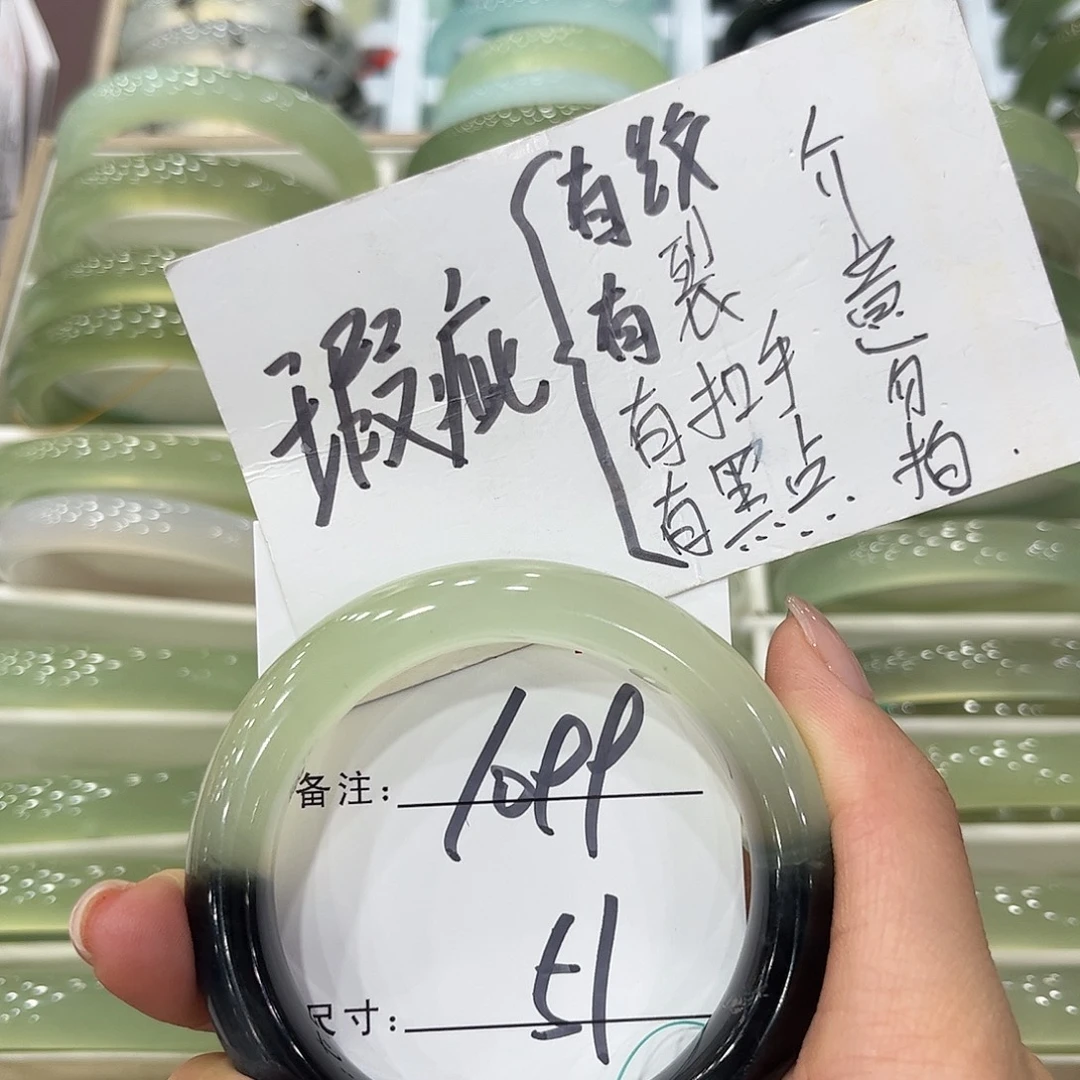 瑕疵
有纹
有裂
有扣手
有黑点.
介意勿拍.
备注: 1099
尺寸: 51